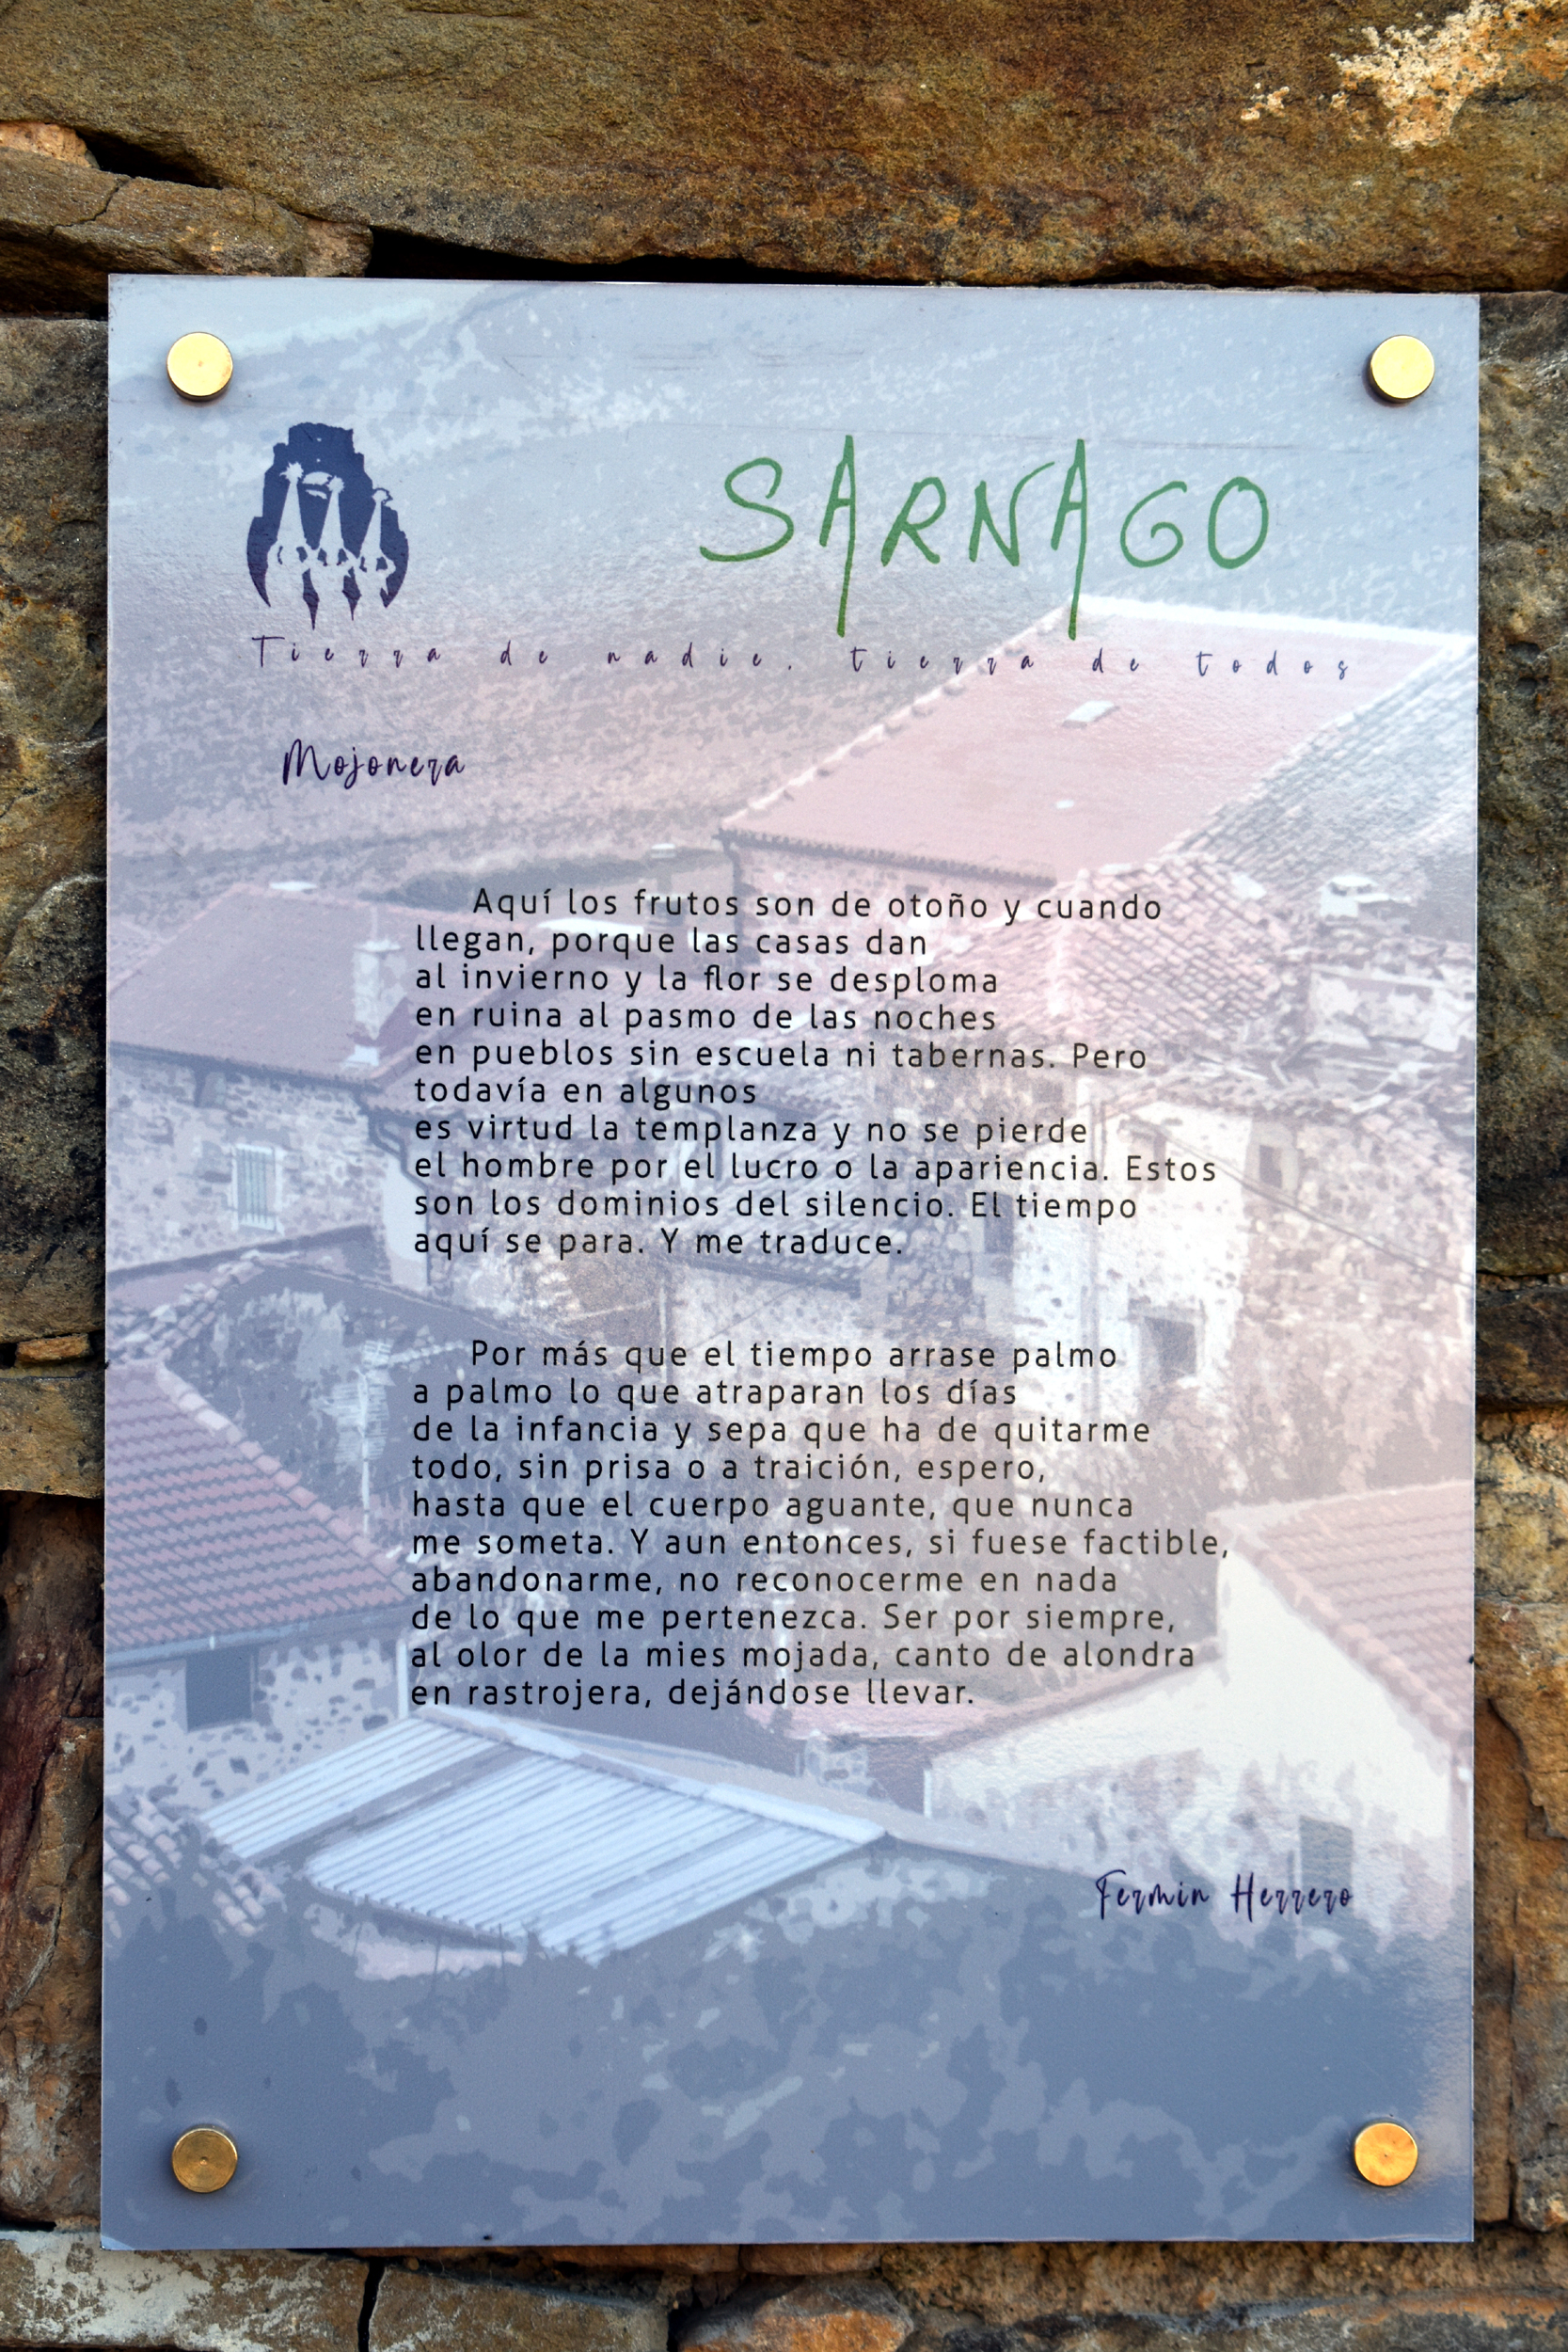 SARNAGO
Tierra de nadie, tierra de todos
Mojonera
Aquí los frutos son de otoño y cuando
llegan, porque las casas dan
al invierno y la flor se desploma
en ruina al pasmo de las noches
en pueblos sin escuela ni tabernas. Pero
todavía en algunos
es virtud la templanza y no se pierde
el hombre por el lucro o la apariencia. Estos
son los dominios del silencio. El tiempo
aquí se para. Y me traduce.
Por más que el tiempo arrase palmo
a palmo lo que atraparan los días
de la infancia y sepa que ha de quitarme
todo, sin prisa o a traición, espero,
hasta que el cuerpo aguante, que nunca
me someta. Y aun entonces, si fuese factible,
abandonarme, no reconocerme en nada
de lo que me pertenezca. Ser por siempre,
al olor de la mies mojada, canto de alondra
en rastrojera, dejándose llevar.
Fermín Herrero